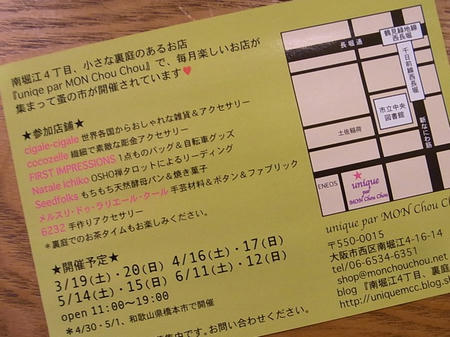 南堀江4丁目、小さな裏庭のあるお店
『uniqe par MON Chou Chou』で、毎月楽しいお店が
集まって蚤の市が開催されています♥
★参加店舗★
cigale-cigale 世界各国からおしゃれな雑貨&アクセサリー
cocozelle 繊細で素敵な彫金アクセサリー
FIRST IMPRESSIONS 1点ものバッグ&自転車グッズ
Natale ichiko OSHO禅タロットによるリーディング
Seedfolks もちもち天然酵母パン&焼き菓子
メルスリ・ドゥ・ラリエール・クール 手芸材料&ボタン&ファブリック
6232 手作りアクセサリー
*裏庭でのお茶タイムもお楽しみください。
★開催予定★
3/19(土)・20(日) 4/16(土)・17(日)
5/14(土)・15(日) 6/11(土)・12(日)
open 11:00〜19:00
*4/30・5/1、和歌山県橋本市で開催
集中です。お問い合わせください。
鶴見緑地線
西長堀
長堀通
千日前線西長堀
市立中央
図書館
新なにわ筋
土佐稲荷
ENEOS
★
unique
par
MON Chou Chou
unique par MON Chou
〒550-0015
大阪市西区南堀江4-16-14
tel/06-6534-6351
shop@monchouchou.net
blog 『南堀江4丁目、裏庭
http://uniquemcc.blog.sh